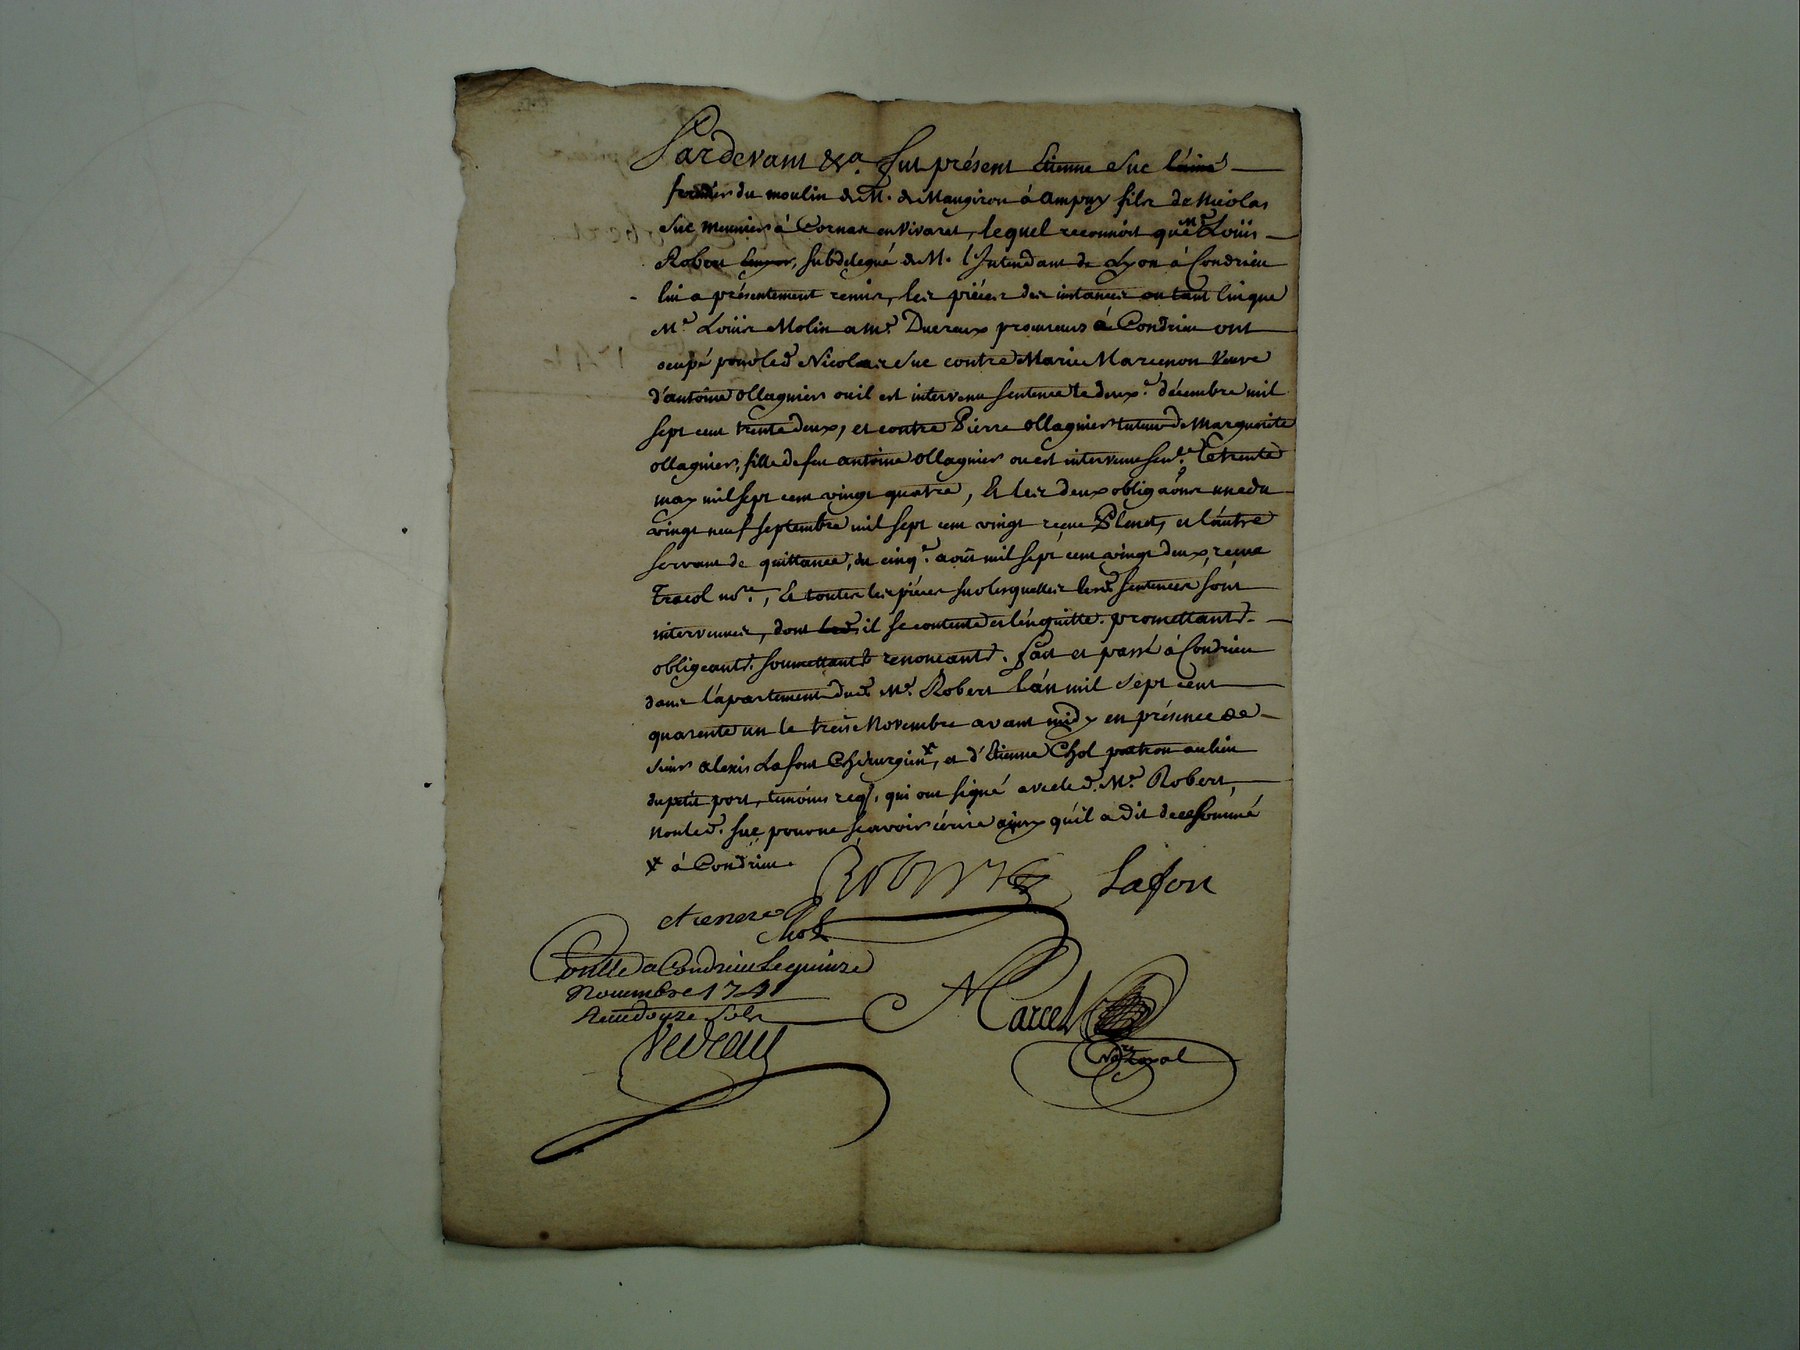 Pardevant &a. fut présent Etienne Suc l'ainé
fermier du moulin de M. de Maugiron à Ampuy fils de Nicolas
Suc meunier à Cornas en Vivarets, lequel reconnoit que Me Loüis
Robert subdelegué de M. l'Intendant de Lyon à Condrieu
lui a présentement remis, les piéces des instances ou tant lieque
Me Loüis Molin a me Ducreux procureurs à Condrieu ont
ocupé pour led. Nicolas Suc contre Marie Marcenon Veuve
d'antoine Ollagnier ou il est intervenu sentence le deuxe décembre mil
sept cent trente deux, et contre Pierre Ollagnier tuteur de Marguerite
ollagnier, fille de feu antoine Ollagnier ou est intervenu senc.e Le trente
may mil sept cent vingt quatre, Et les deux obligaons une du
vingt neuf septembre mil sept cent vingt reçue Plenet, et l'autre
servant de quittance, du cinqe aoüt mil sept cent vingt deux, reçue
Tracol nore, Et toutes les piéces sur lesquelles lesd. sentences sont
intervenues, dont il se contente et l'en quitte. promettant &.
obligeant &. soumettant & renonçant &. fait et passé à Condrieu
dans l'apartement dud. Me. Robert l'an mil sept cent
quarente un le treise Novembre avant midy en présence de
sieur Alexis Lafont Chirurgien x, et d'Etienne Chol patron au lieu
du petit port, temoins req., qui ont signé avec led. Me Robert,
non led. Suc pour ne sçavoir écrire ainsy qu'il a dit de ce sommé
x à Condrieu
Robert Lafon
etienne Chol
Conllé a Condrieu Le quinze
Novembre 1741
Receu douze sols
Marcel
Nore Royal